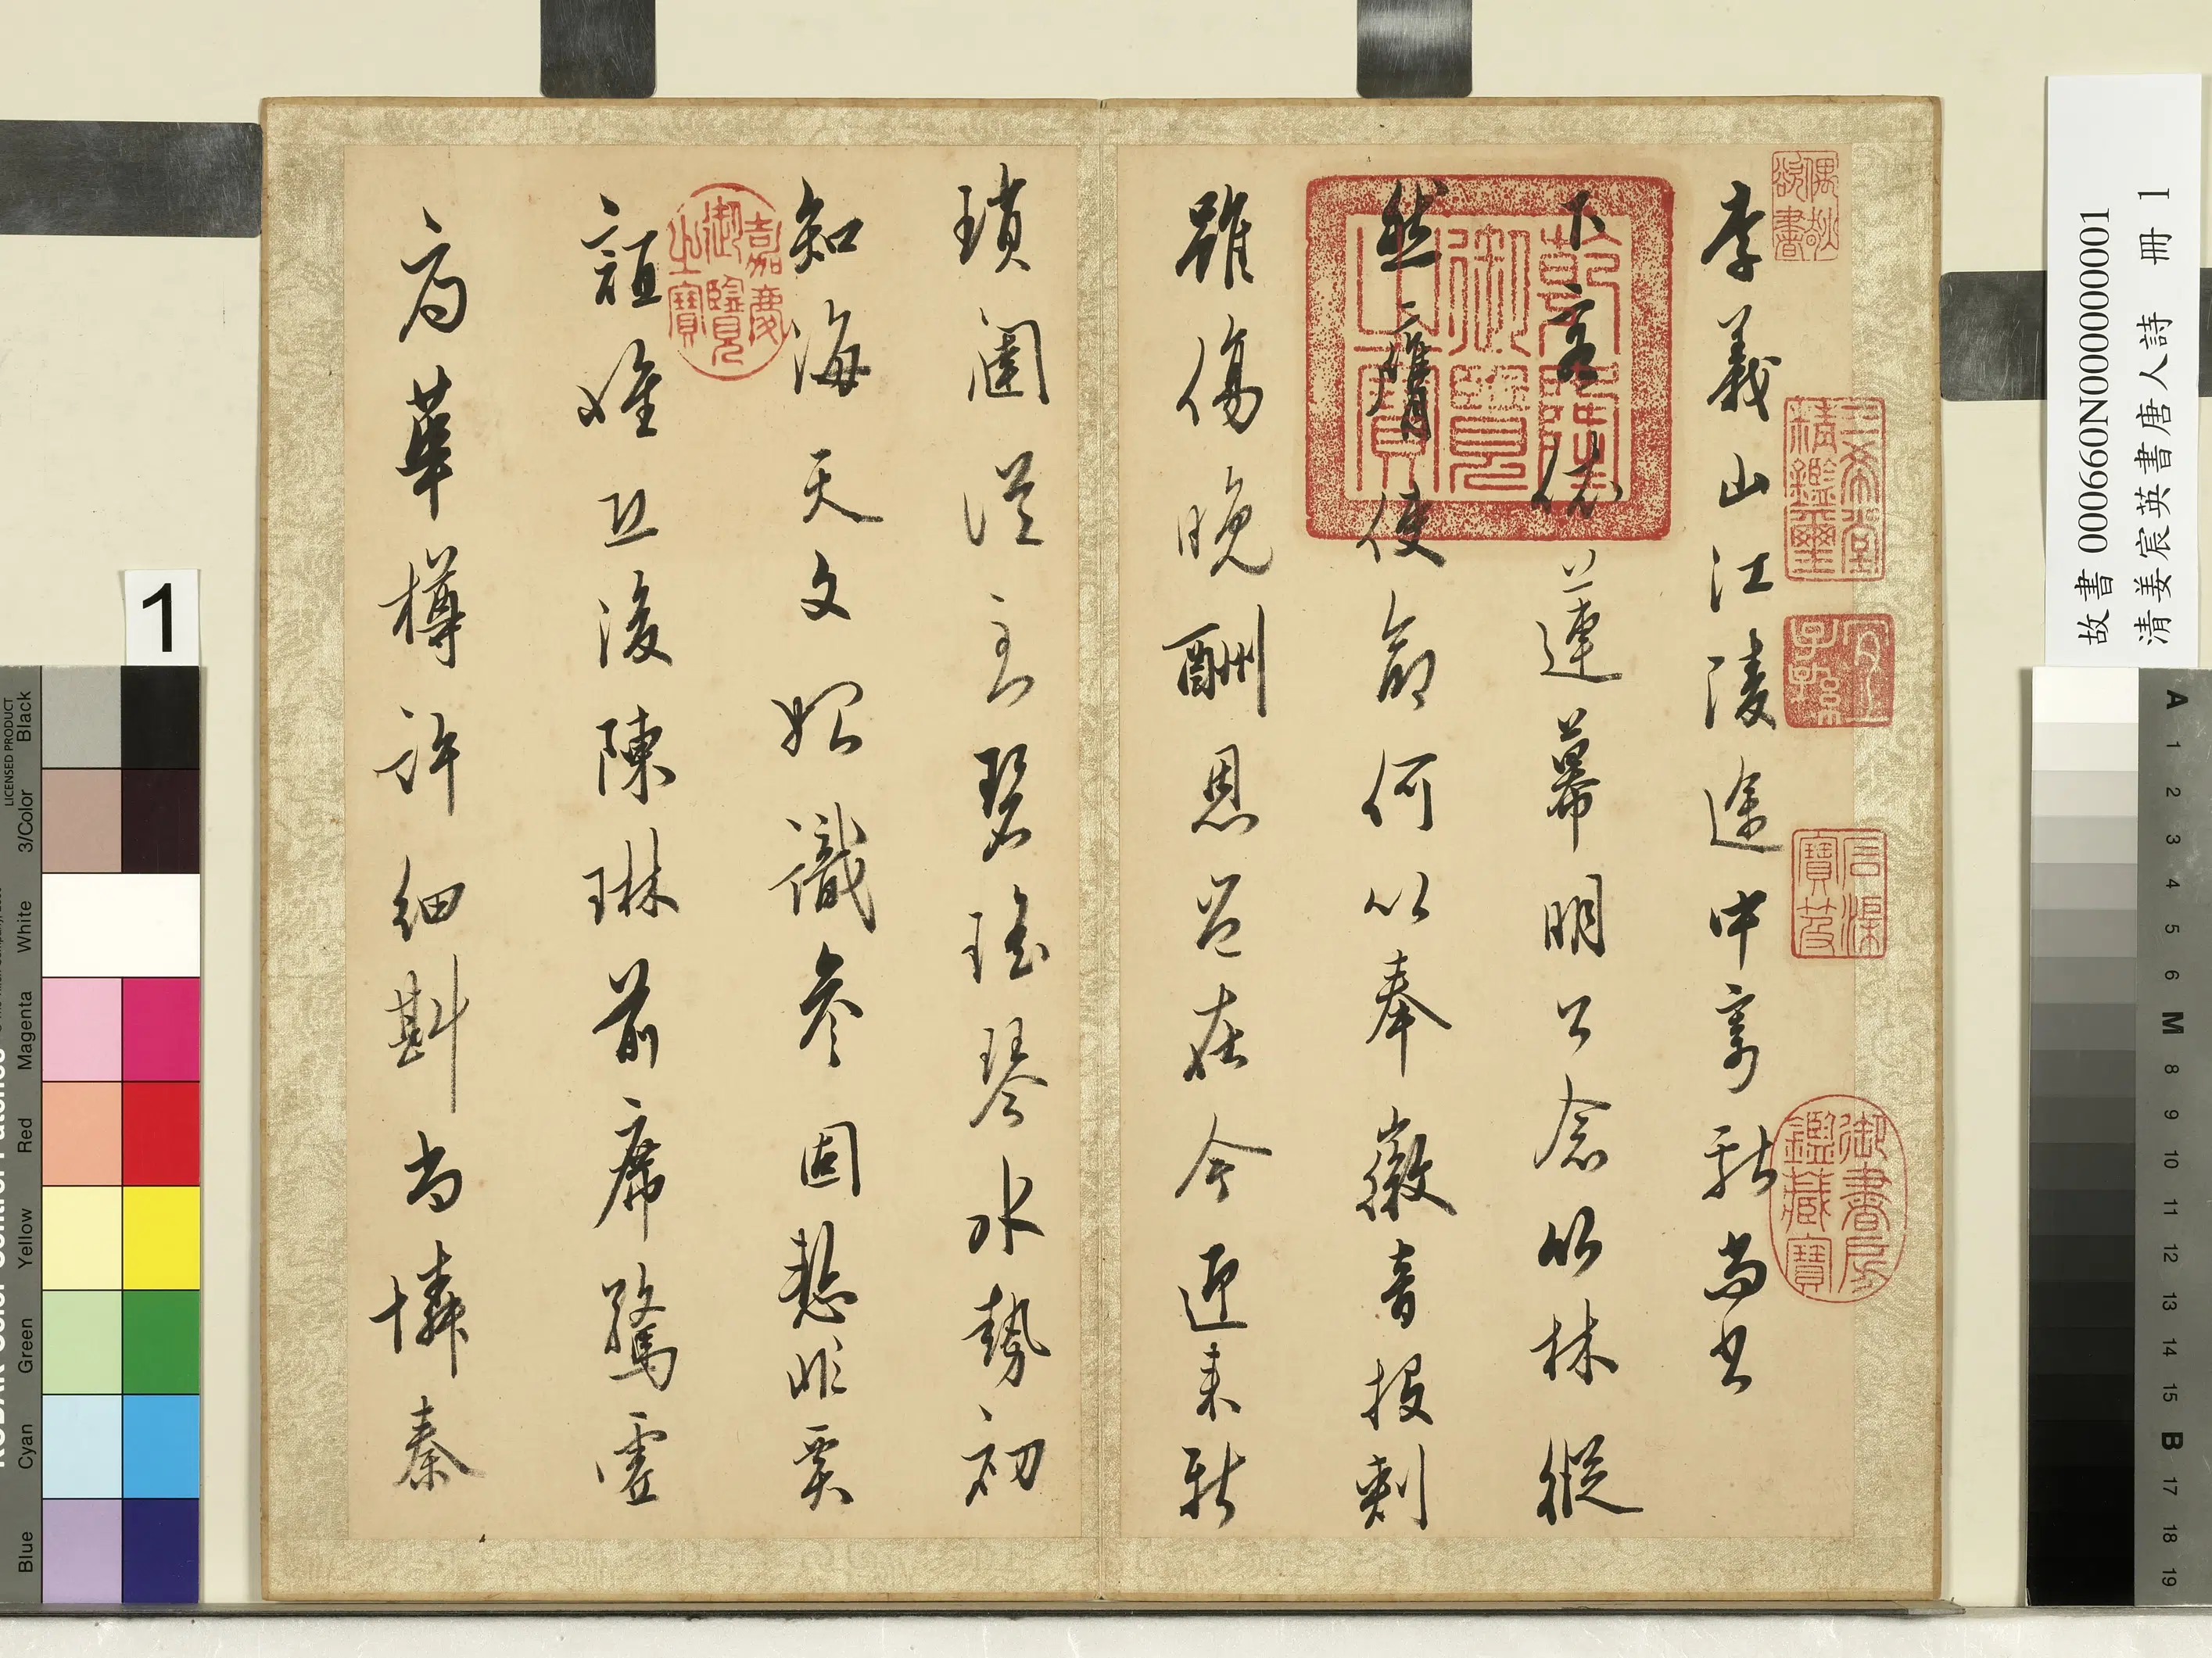 故書 000660N000000001
清姜宸英書唐人詩 冊 1
李義山江陵途中寄獻尚書
下客依蓮幕明公念竹林縱
然膺使命何以奉徽音投刺
雖傷晚酬恩豈在今迎來新
瑣闥從到碧瑤琴水勢初
知海天文始識參固慙非賈
誼惟恐後陳琳前席驚虛
辱華樽許細斟尚憐秦
三希堂精鑑璽
宜子孫
石渠寶笈
御書房鑑藏寶
乾隆御覽之寶
嘉慶御覽之寶
1
LICENSED PRODUCT
Black
3/Color
White
Magenta
Red
Yellow
Green
Cyan
Blue
A 1 2 3 4 5 6 M 8 9 10 11 12 13 14 15 B 17 18 19